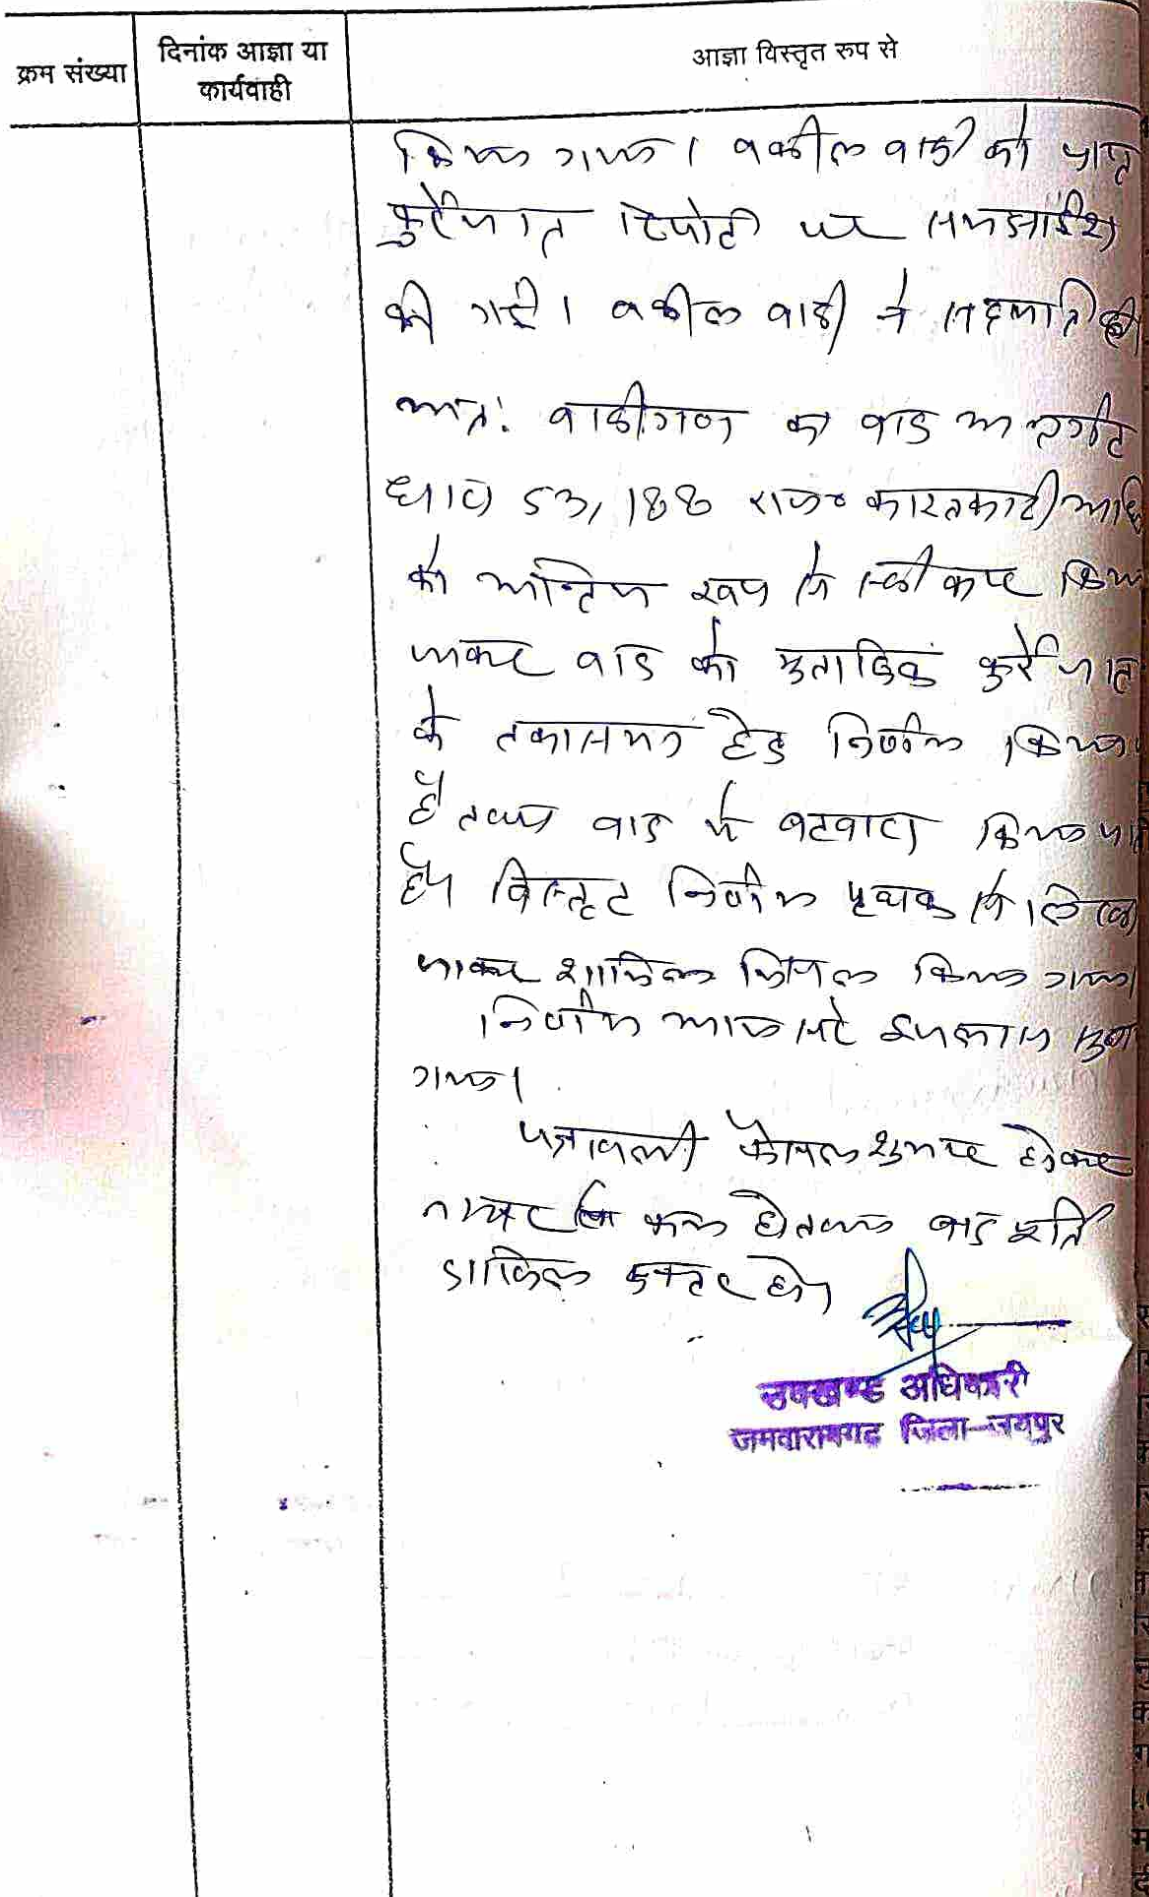 क्रम संख्या
दिनांक आज्ञा या
कार्यवाही
आज्ञा विस्तृत रुप से
किया गया। वकील वादी को प्राप्त
कुर्रेजात रिपोर्ट पर समझाईश
की गई। वकील वादी ने सहमति दी
अतः वादीगण का वाद अन्तर्गत
धारा 53, 188 राज० काश्तकारी अधि
को अन्तिम रूप से स्वीकार किया
जाकर वाद को मुताबिक कुर्रेजात
के तकासमा हेतु निर्णय किया
है तथा वाद में बटवारा किया जाता
है। विस्तृत निर्णय पृथक से लिखा
जाकर शामिल मिसल किया गया।
निर्णय आज सरे इजलास सुनाया
गया।
पत्रावली फैसल शुमार होकर
नम्बर से कम हो तथा वाद पूर्ति
दाखिल दफ्तर हो।
उपखण्ड अधिकारी
जमवारामगढ जिला-जयपुर